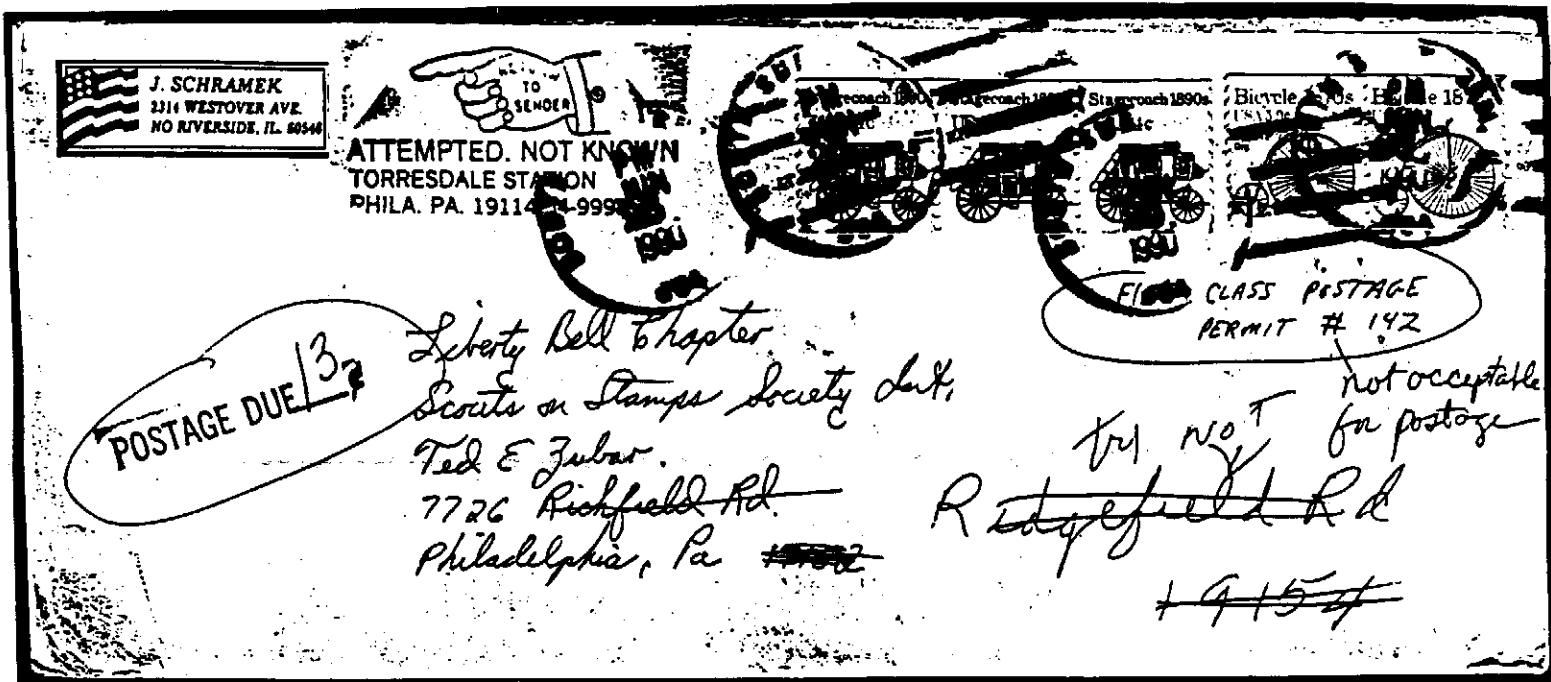 J. SCHRAMEK
2314 WESTOVER AVE.
NO RIVERSIDE, IL. 60546
TO
SENDER
ATTEMPTED. NOT KNOWN
TORRESDALE STATION
PHILA. PA. 19114
Stagecoach 1890s
Bicycle 1870s
1990
1990
FIRST CLASS POSTAGE
PERMIT # 142
not acceptable
for postage
POSTAGE DUE 13
Liberty Bell Chapter
Scouts on Stamps Society
Ted E Zubar.
7726 Richfield Rd.
Philadelphia, Pa
try NOT
Ridgefield Rd
19154